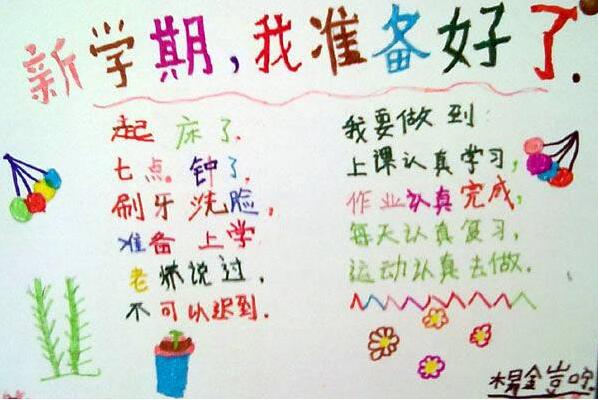 新学期,我准备好了.
起床了.
七点.钟了.
刷牙洗脸,
准备上学
老师说过.
不可以迟到.
我要做到:
上课认真学习,
作业认真完成,
每天认真复习,
运动认真去做.